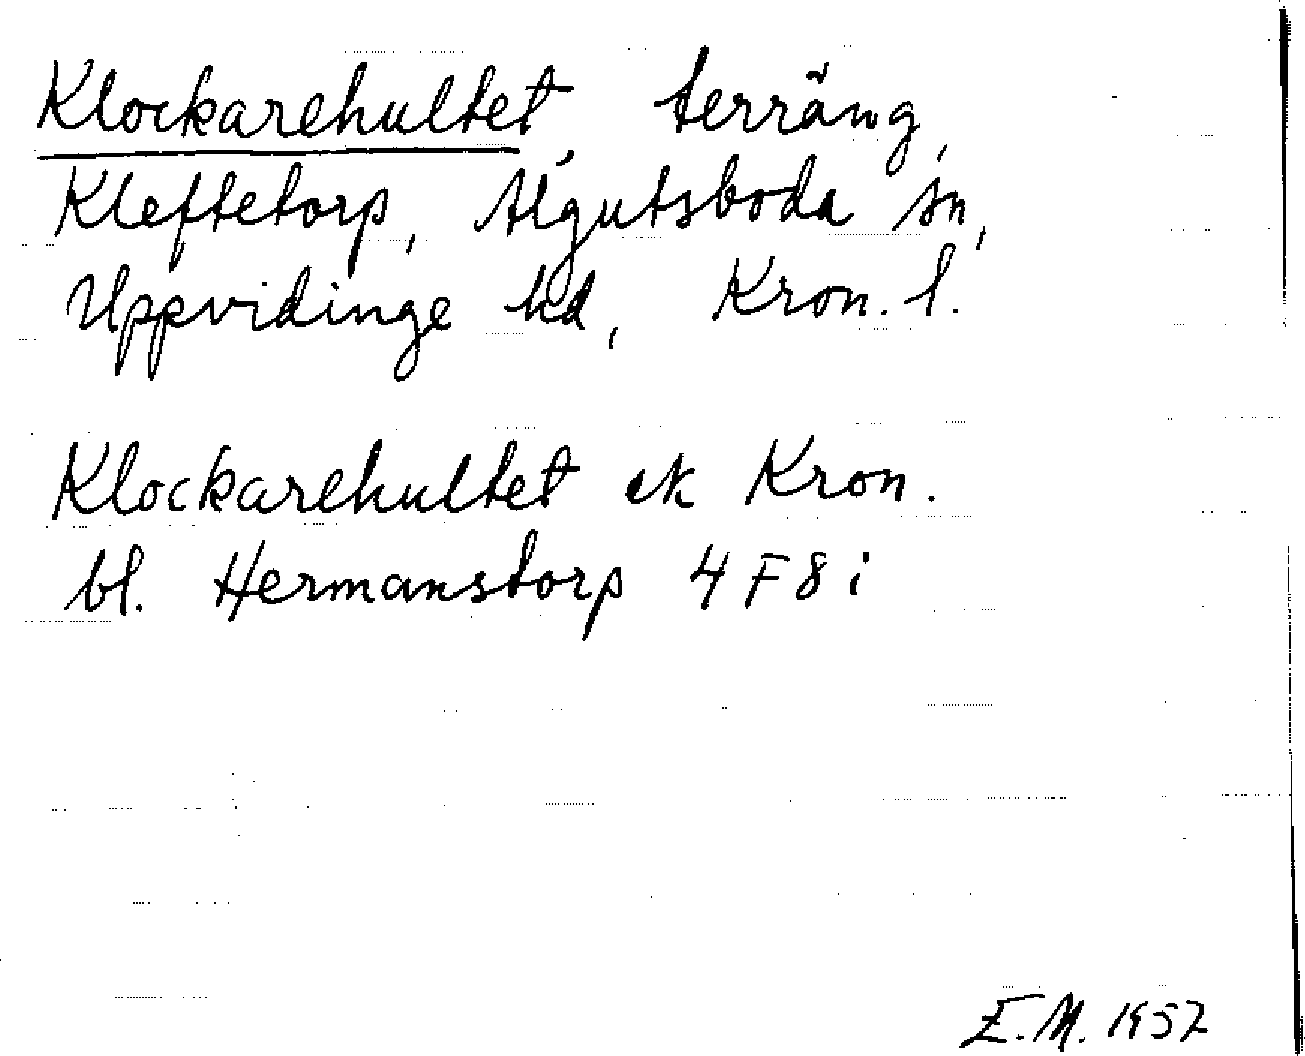 Klockarehultet, terräng,
Kleftetorp, Algutsboda sn,
Uppvidinge hd, Kron. l.
Klockarehultet ek Kron.
bl. Hermanstorp 4 F 8 i
E. M. 1957